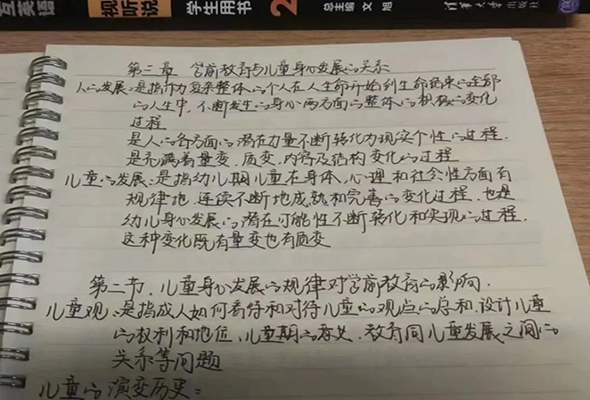 互英语 视听说 学生用书 2 总主编 文旭 清华大学出版社
第二章 学前教育与儿童身心发展的关系
人的发展:是指作为复杂整体的个人在从生命开始到生命结束的全部
的人生中,不断发生的身心两方面的整体的积极的变化
过程
是人的各方面的潜在力量不断转化为现实个性的过程.
是充满着量变、质变,内容及结构变化的过程
儿童的发展:是指幼儿期儿童在身体、心理和社会性方面有
规律地、连续不断地成熟和完善的变化过程,也是
幼儿身心发展的潜在可能性不断转化和实现的过程,
这种变化既有量变也有质变
第二节、儿童身心发展的规律对学前教育的影响.
儿童观:是指成人如何看待和对待儿童的观点的总和,设计儿童
的权利和地位、儿童期的意义、教育同儿童发展之间的
关系等问题
儿童的演变历史: